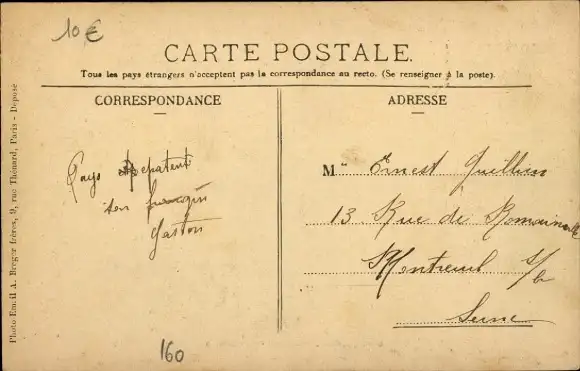 10€
CARTE POSTALE.
Tous les pays étrangers n'acceptent pas la correspondance au recto. (Se renseigner à la poste).
CORRESPONDANCE
ADRESSE
Pays
ton
Gaston
M Ernest Guillien
13 Rue de Romainville
Montreuil s/b
Seine
160
Photo Émail A. Breger frères, 9, rue Thénard, Paris - Déposé